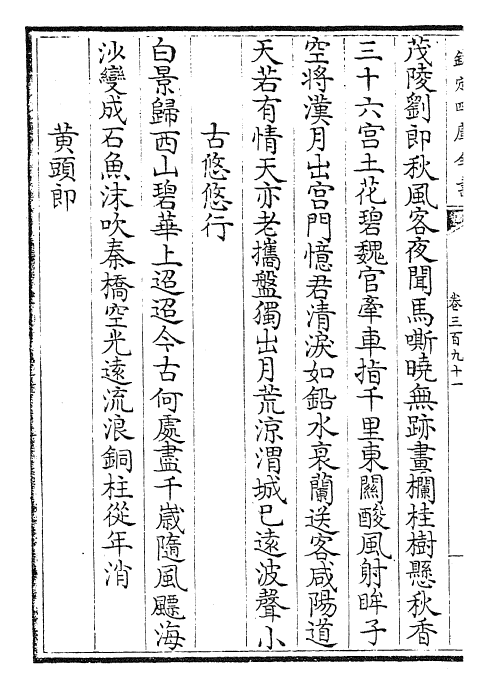 欽定四庫全書
卷三百九十一
茂陵劉郎秋風客夜聞馬嘶曉無跡畫欄桂樹懸秋香
三十六宫土花碧魏官牽車指千里東關酸風射眸子
空將漢月出宫門憶君清淚如鉛水衰蘭送客咸陽道
天若有情天亦老攜盤獨出月荒涼渭城已遠波聲小
古悠悠行
白景歸西山碧華上迢迢今古何處盡千嵗隨風飄海
沙變成石魚沫吹秦橋空光遠流浪銅柱從年消
黄頭郎